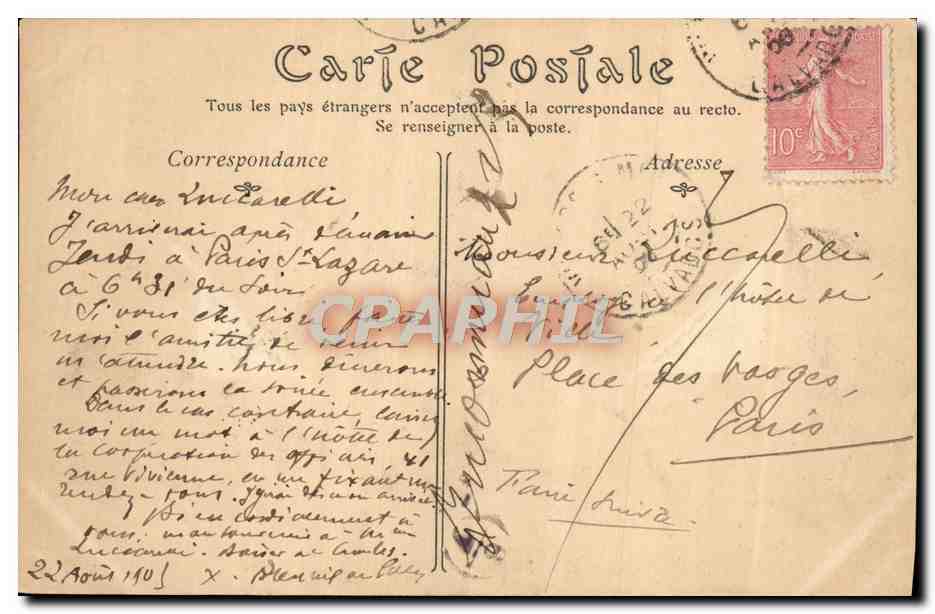 Carte Postale
Tous les pays étrangers n'acceptent pas la correspondance au recto.
Se renseigner à la poste.
Correspondance
Adresse
10c
CALVADOS
22
CALVADOS
Mon cher Luccarelli
J'arriverai après demain
Jeudi à Paris St Lazare
à 6h31 du soir
Si vous êtes libre faites
moi l'amitié de venir
m'attendre. Nous dinerons
et passerons la soirée ensemble
Dans le cas contraire laissez
moi un mot à l'hôtel de
la Coopération des officiers 41
rue Vivienne, en me fixant un
rendez-vous.
Bien cordialement à
vous, mon souvenir à
Luccarelli. Baiser de
22 Août 1905
Monsieur Luccarelli
l'hôtel de
Ville
Place des Vosges,
Paris
Faire suivre
inconnu au
CPARHIL